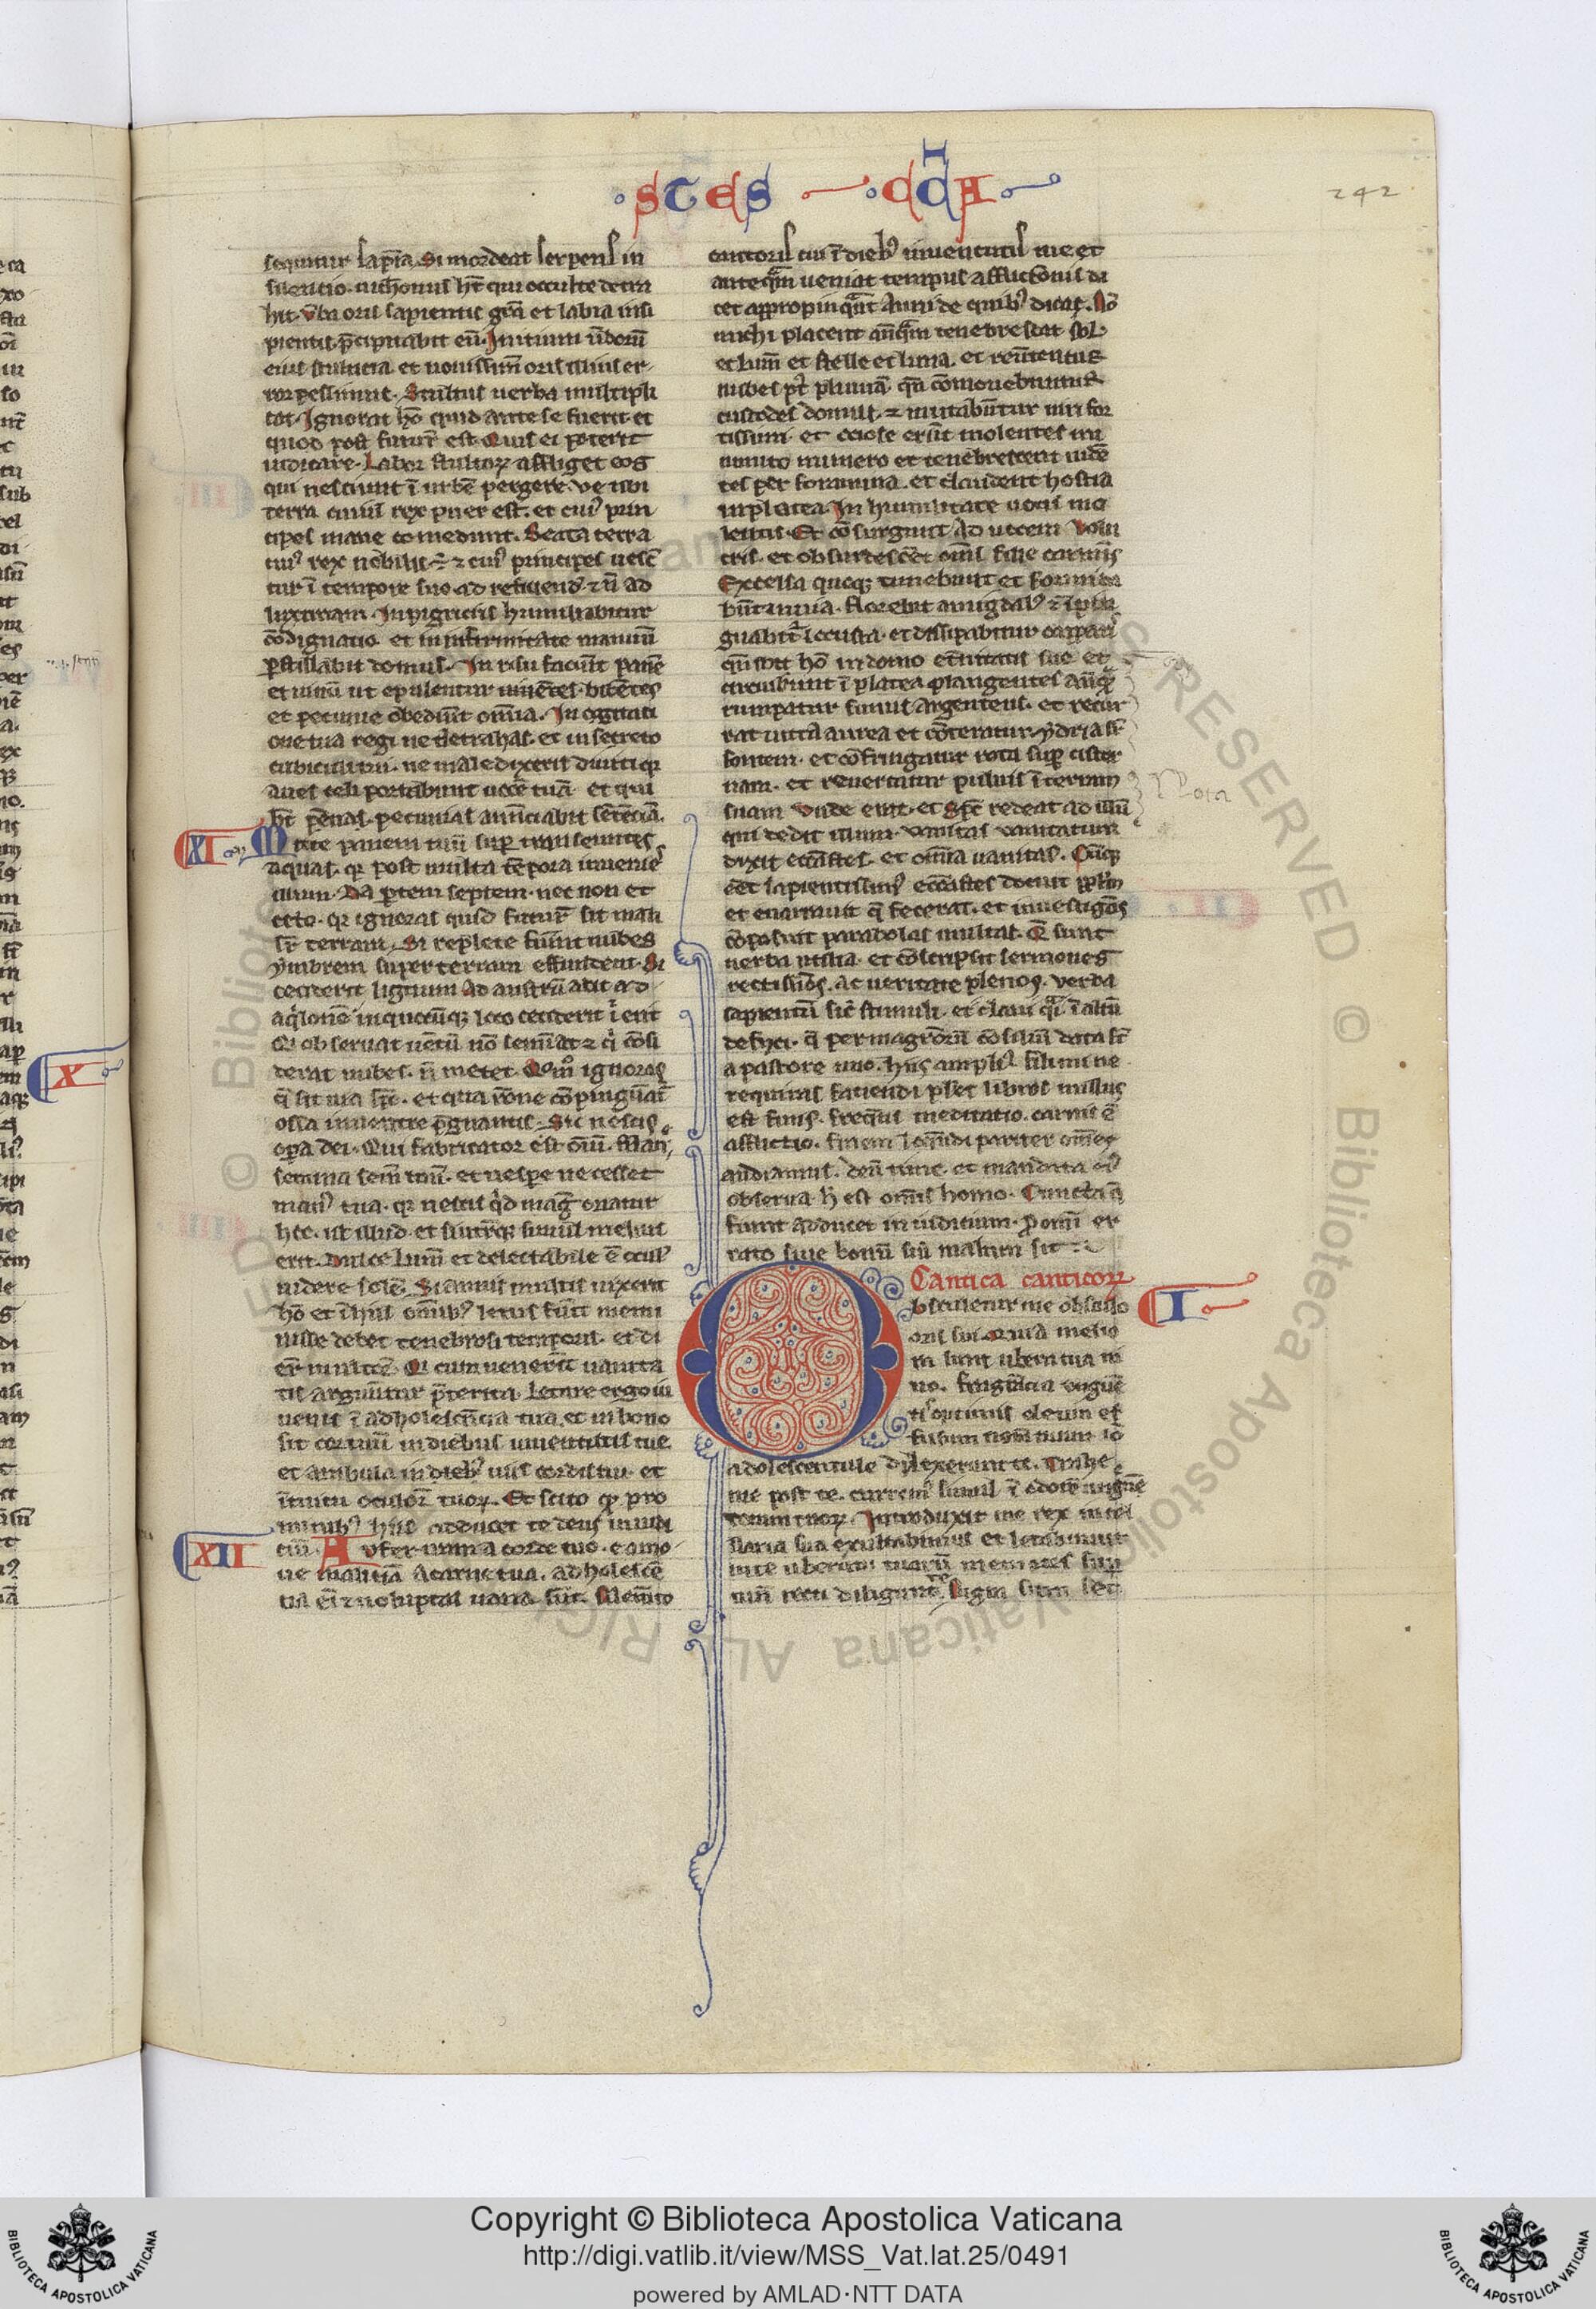 stes cciā
242
sequitur sap̄ia. Si mordeat serpens in
silentio. nichomīs hr̄ qui occulte detra
hit. Ūba oris sapientis grā et labia insi
pientis p̄cipitabit eū. Initium ūborū
eius stulticia et nouissimū oris illius er
ror pessimus. Stultus uerba multipli
cat. Ignorat hō quid ante se fuerit. et
quod post futur̄ est. Quis ei poterit
indicare. Labor stultoꝝ affliget eos
qui nesciunt ī urbē pergere. Ve tibi
terra cuius rex puer est. et cuiꝰ prin
cipes mane comedunt. Beata terra
cuiꝰ rex nobilis ē. ⁊ cuiꝰ principes uescū
tur ī tempore suo. ad reficiendū ⁊ n̄ ad
luxuriam. In pigriciis humiliabitur
cōtignatio. et in infirmitate manuū
ꝑstillabit domus. In risu faciūt panē
et uinū ut epulentur uiuētes. bibētes
et pecunie obediūt omīa. In cogitati
one tua regi ne detrahas. et in secreto
cubiculi tui. ne male dixeris diuiti qꝛ
aues celi portabunt uocē tuā. et qui
hr̄ pēnas. pecunias annūciabit sētēciā.
XI Mitte panem tuū suꝑ transeuntes
aquas. qꝛ post multa tēpora inuenies
illum. Da ꝑtem septem. nec non et
octo. qꝛ ignoras quid futur̄ sit mali
sr̄ terram. Si replete fuerit nubes
ymbrem super terram effundent. Si
ceciderit lignum ad austrū aut ad
aq̇lonē in quocūqꝫ loco ceciderit ī erit
Qi obseruat uētū nō seminat ⁊ q̇ cōsi
derat nubes. n̄ metet. Quom̊ ignoras
q̄ sit uia sp̄c. et qua rōne cōpingūat̄
ossa in uentre p̄gnantis. Sic nescis
oꝑa dei. Qui fabricator est oīū. Man
semina semē tuū. et uespe ne cesset
manꝰ tua. qꝛ nescis q̇d mag̃ oriatur
hoc. ut illud. et si utrūqꝫ simul melius
erit. Dulce lum̄ et delectabile ē oculꝰ
uidere solē. Si annis multis uixerit
hō et ī hiis omībꝰ letus fūit memi
nisse debet tenebrosi temporis. et di
eꝝ multoꝝ. Qi cum uenerīt uanita
tis arguūtur p̄terita. Letare ergo iu
uenis ī adholescēcia tua. et in bono
sit cor tuū in diebus iuuentutis tue.
et ambula in diebꝰ uiis cordis tui. et
ītuitu oculoꝝ tuoꝝ. Et scito qꝫ pro
omībꝰ hiis adducet te deus in iudi
XII ciū. Aufer iram a corde tuo. ⁊ amo
ue maliciā a carne tua. adholescē
cia eī ⁊ uoluptas uana sūt. Memēto
creatoris tui ī diebꝰ iuuentutis tue et
anteqm̄ ueniat tempus afflictōnis di
cet appropinqūt anni de quibꝰ dicas. Nō
michi placent. anteqm̄ tenebrescat sol
et lum̄ et stelle et luna. et reuertentur
nubes pꝰ pluuiā. qn̄ cōmouebuntur
custodes domus. ⁊ mutabūtur uiri for
tissimi. et ociose erūt molentes in
minuto numero et tenebrescent uidē
tes per foramina. et claudent hostia
in platea. In humilitate uocis mo
lentis. Et cōsurgunt. ad uocem volu
cris. et obsurdescēt omīs filie carmīs
Excelsa quoqꝫ timebunt et formida
būt in uia. Florebit amigdalꝰ ⁊ īpin
guabit̄ locusta. et dissipabitur capparꝰ
qm̄ ibit hō in domū et̄nitatis sue et
circuibunt ī platea plangentes. Anteqꝫ
rumpatur funis argenteus. et recur
rat uitta aurea et cōteratur ydria sr̄
fontem. et cōfringatur rota suꝑ cister
nam. et reuertatur puluis ī terram
suam unde erat. et sp̄c redeat ad illū
qui dedit illum. Vanitas vanitatum
dixit ecc̄astes. et omīa uanitas. Cūqꝫ
eēt sapientissimꝰ ecc̄astes docuit ppl̄m
et enarrauit q̄ fecerat. et inuestigās
cōposuit parabolas multas. Q̄ siuit
uerba utilia. et cōscripsit sermones
rectissīos. ac ueritate plenos. Verba
sapientū sic̄ stimuli. et clauī qi̅ ī altū
defixi. q̄ per magrōrū cōsiliū data sr̄
a pastore uno. hiis ampliꝰ fili mi ne
requiras. faciendi plꝰes libros nullus
est finis. frequēs meditatio. carnis ē
afflictio. finem loquēdi pariter omēs
audiamus. deū time. et mandata eiꝰ
obserua. h̄ est omīs homo. Cuncta q̄
fiunt adducet in iudicium. pro omī er
rato siue bonū siū malum sit
Cantica canticoꝝ
I Osculetur me osculo
oris sui. Quia melio
ra sunt ubera tua ui
no. fragrācia unguē
tis optimis. oleum ef
fusum nom̄ tuum. io
adolescentule dilexerunt te. Trahe
me post te. currem̄ simul ī odorē unguē
torum tuoꝝ. Introduxit me rex in cel
laria sua exultabimus et letabimur
in te uberum tuorū memores suꝑ
uinū recti diligunt te. Nigra sum sed
Nota
X
Copyright © Biblioteca Apostolica Vaticana
http://digi.vatlib.it/view/MSS_Vat.lat.25/0491
powered by AMLAD·NTT DATA
BIBLIOTECA APOSTOLICA VATICANA
BIBLIOTECA APOSTOLICA VATICANA
© Biblioteca Apostolica Vaticana ALL RIGHTS RESERVED